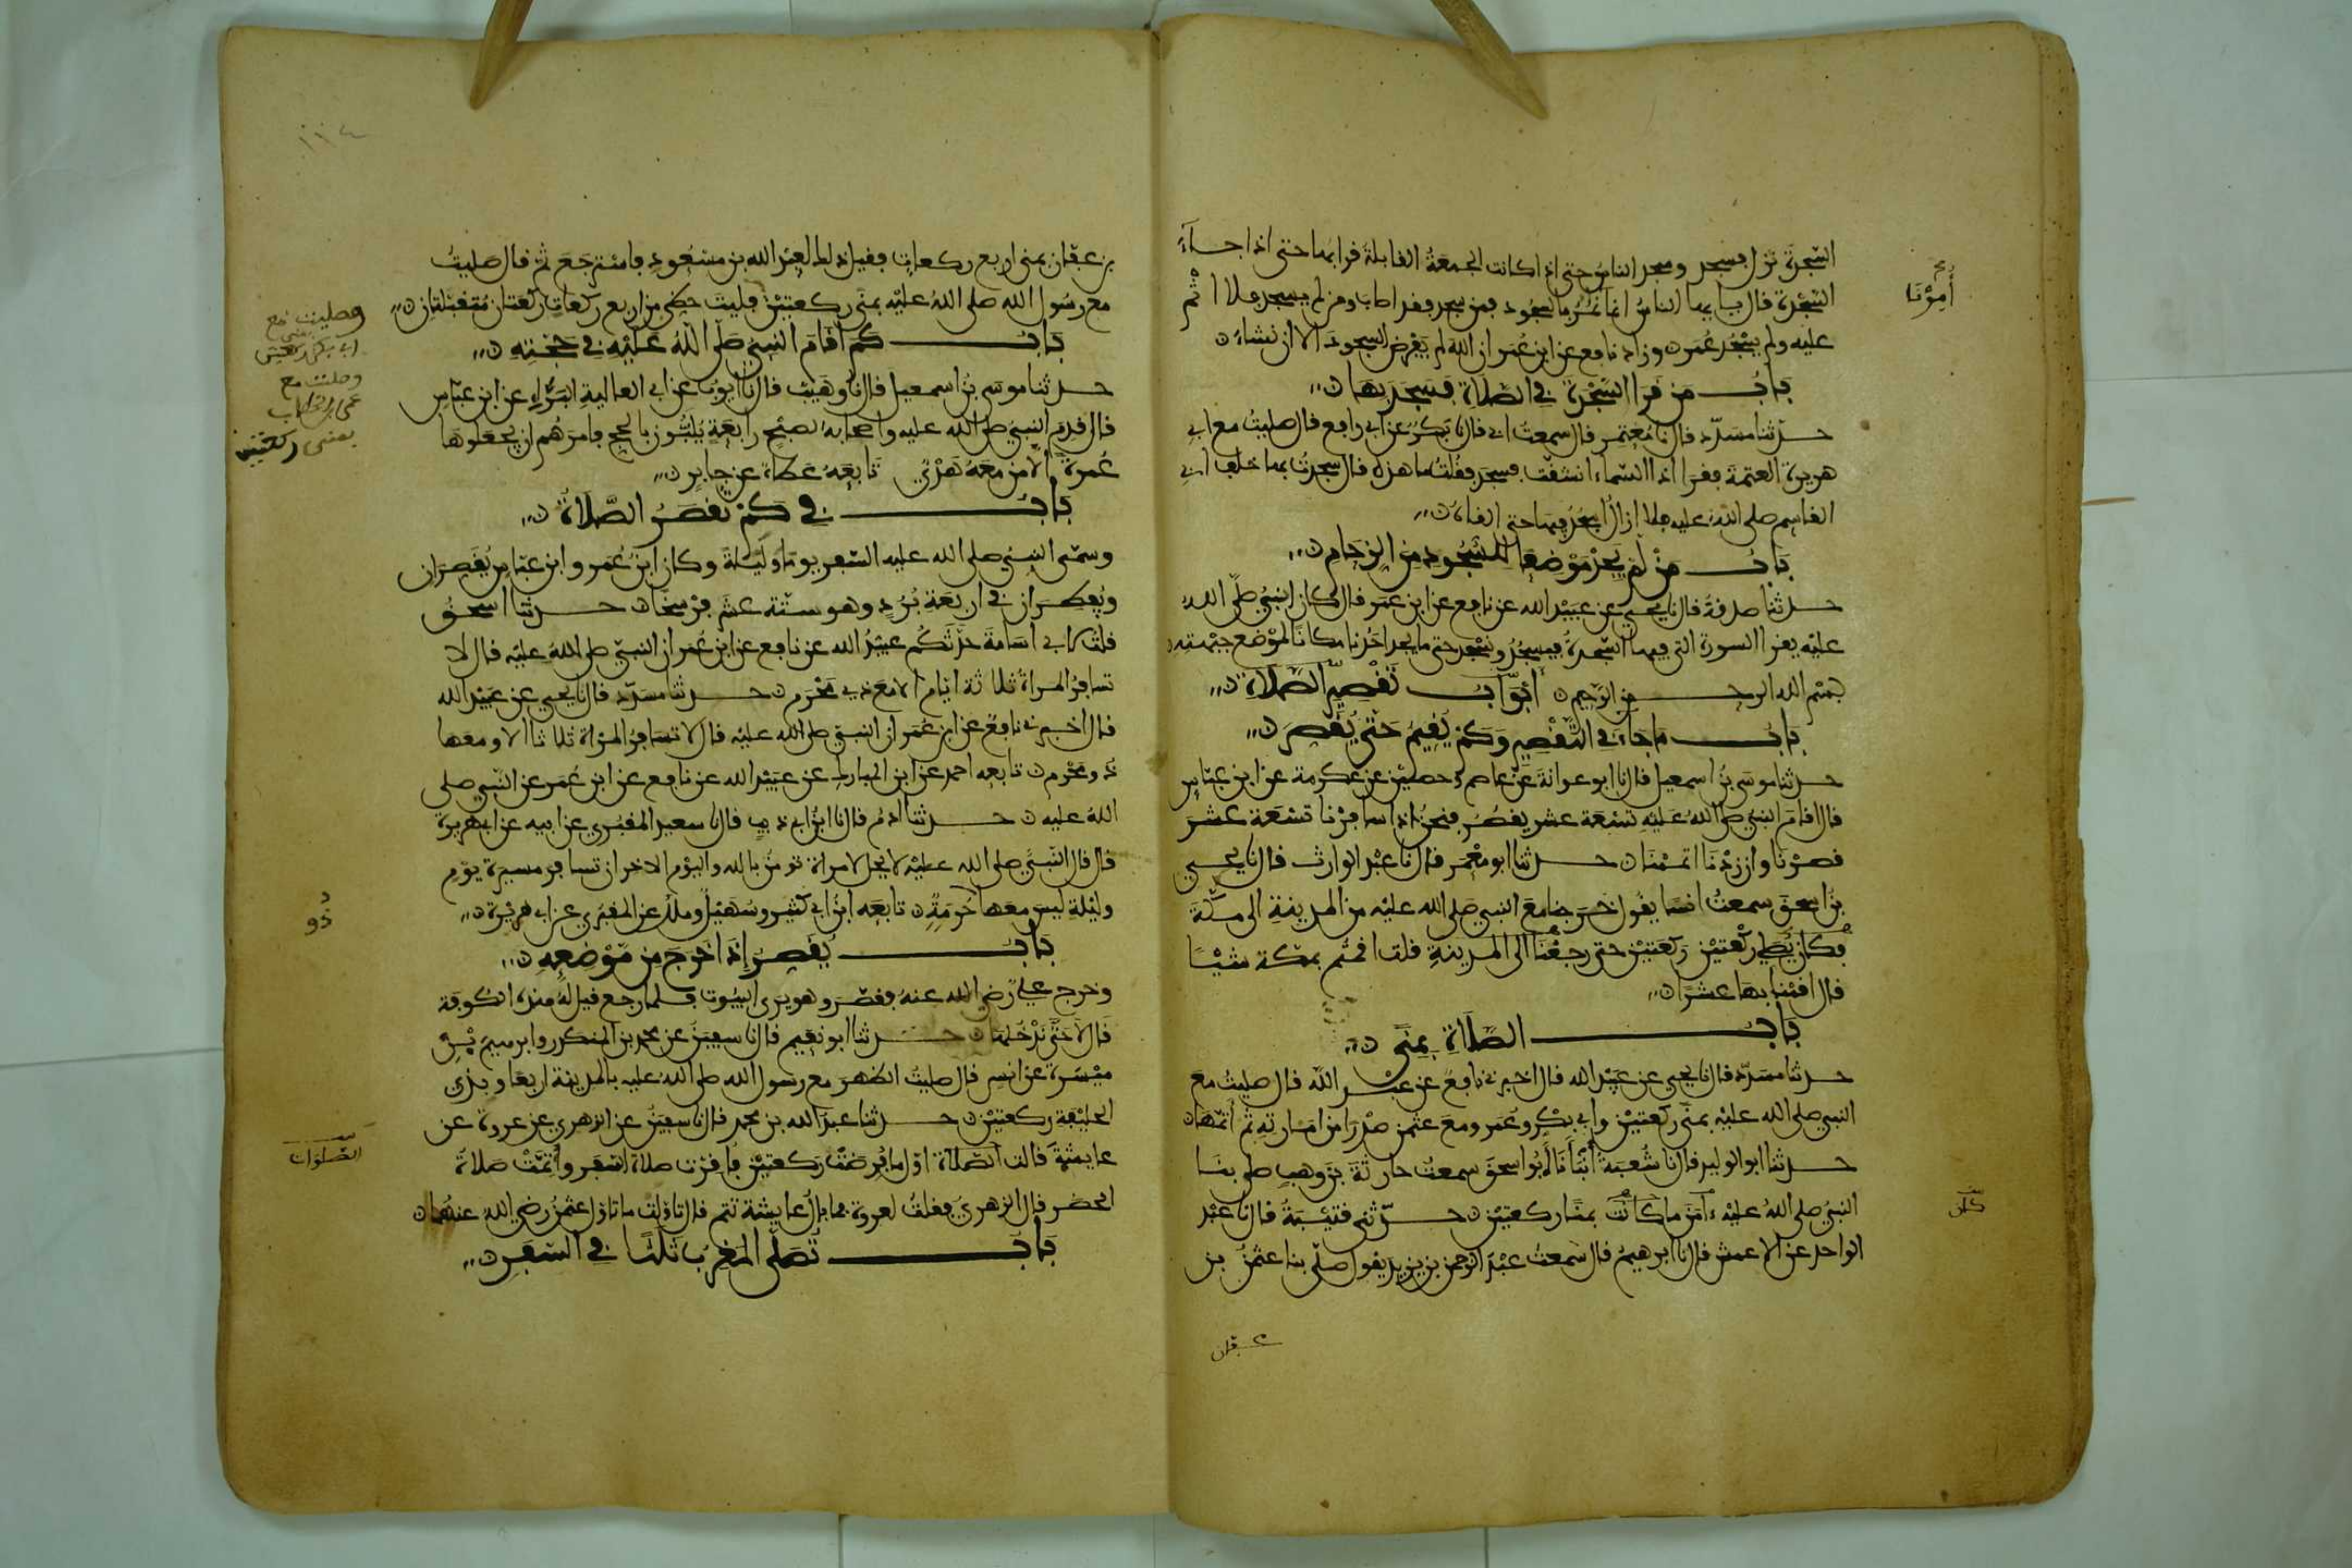 السّجدةَ نزل فسجد وسجد الناسُ حتى اذا كانت الجمعةُ القابلةُ قرا بها حتى اذا جآءَ
السّجدة قال يا ايها الناسُ انما نَمُرُّ بالسجود فمن سجد فقد اصاب ومن لم يسجد فلا اثم
أُمِرْنَا
عليه ولم يسْجُد عُمر وزاد نافع عن ابن عُمر ان اللهَ لم يَفْرِض السجودَ الا ان نشاءَ
بَابُ من قَرا السّجْدَةَ في الصّلاة فسَجَدَ بها
حدثنا مسدّد قال نا مُعتمر قال سمعتُ ابي قال نا بَكرٌ عن ابي رافع قال صليتُ مع ابي
هريرة العتمة فقرا اذا السّماء انشقّت فسجد فقُلتُ ما هذه قال سجدتُ بها خلف ابي
القاسم صلى اللهُ عليه فلا ازالُ اسْجُدُ فيها حتى القاهُ
بَابُ منْ لم يَجدْ مَوْضِعًا للسُّجُود منَ الزحَامِ
حدثنا صدقةُ قال نا يحيى عن عبيْد الله عن نافع عن ابن عمر قال كان النبيُّ صلّى اللهُ
عليْه يقرا السورة التي فيها السّجدةُ فيسجُدُ ونسْجد حتى ما يجد احَدُنا مكانًا لموْضع جبْهته
بسْم الله الرحمن الرّحيم أَبْوَابُ تَقْصِيرِ الصّلاةِ
بَابُ مَا جَاءَ في التّقْصِير وَكَمْ يُقيمُ حَتّى يُقَصِرَ
حدثنا موسَى بنُ اسمعيل قال نا ابو عوانةَ عَنْ عاصم وحصيْن عن عكرمة عن ابن عبّاس
قال اقامَ النبيّ صلى اللهُ عَليْه تسْعة عشر يقصُر فنحْنُ اذا سافرْنا تسْعَةَ عشَرَ
قصرْنَا وان زدْنَا اتممْنَا حدثنا ابو معْمَر قال نا عبْد الوارث قال نا يحيى
بنُ اسحق سمعتُ انسًا يقول خرَجنا معَ النبيّ صَلى الله عليْه من المدينةِ الى مكّةَ
فكان يُصَلي ركْعتيْن ركعتيْن حتى رجعْنَا الى المدينةِ قلت اقمتُم بمكة شيْئًا
قال اقمْنا بها عشْرًا
بَابُ الصّلَاةِ بِمنًى
حدثنا مسَدّد قال نا يحيى عن عبَيْد الله قال اخبرني نافعٌ عن عبْد الله قال صليتُ معَ
النبي صلى الله عليْه بمنًى ركعتيْن وابي بكْرٍ وعُمَر ومعَ عثمٰن صدْرًا من امَارتهِ ثُمّ أَتمّهَا
حدثنا ابو الوليد قال نا شُعبَة أَنْبَأَنَا أَبُو اسحقَ سمعتُ حارثَةَ بن وهبٍ صلى بنَا
النبيُّ صلى اللهُ عليْه ءامَنَ ما كَانَتْ بمنًا ركعتيْن حدّثني قتيْبَةُ قال نا عَبْد
كان
الواحد عن الاعمش قال نا ابرهيمُ قال سَمعتُ عبْدَ الرّحمن بن يزيد يقول صلّى بنا عثمٰنُ بن
عفان
١١٤
بن عفّان بمنى اربع ركعات فقيل ذلك لعبْد الله بن مسْعُودٍ فاسْترجَعَ ثم قال صليتُ
مع رسُول الله صلى اللهُ عليْه بمنى ركعتيْن فليتَ حظي من اربع ركعاتٍ ركْعتان مُتقبّلتان
وصليت مع
ابي بكر بمنى ركعتين
وصليت مع
عمر بن الخطاب
بمنى ركعتين
بَابُ كَمْ أَقَامَ النبيّ صَلّى اللّهُ عَليْه في حَجّتِهِ
حدثنا موسَى بنُ اسمعيل قال نا وُهَيْبٌ قال نا أيوبُ عن ابي العاليةِ البَرَّاءِ عن ابن عبّاسٍ
قال قدمَ النبيّ صلى الله عليه واصحابهُ لصبْح رابعَةٍ يُلَبُّونَ بالحج فامرَهُم ان يجعلوهَا
عُمرةً الّا من معَهُ هَدْيٌ تَابعَهُ عَطاءٌ عن جابرٍ
بَابُ في كَمْ تقصَرُ الصَّلاةُ
وسمّى النبيُّ صلى الله عليه السّفر يومًا وليْلةً وكان ابنُ عُمر وابن عبّاس يُقصِرَان
ويُفطرَان في أربعَة بُرُدٍ وهو ستّة عشَر فرْسخًا حدثنا اسحقُ
قلتُ لابي اسَامةَ حدَّثَكُم عبيْدُ الله عن نافع عن ابن عُمَر ان النبيّ صلى اللهُ عليْه قال لا
تسافرُ المراةُ ثلاثة ايّام الا معَ ذي مَحْرَم حدثنا مسَدّد قال نا يحيى عن عبَيْد الله
قال أخبرني نافعٌ عن ابن عُمَر ان النبيّ صلى الله عليْه قال لا تسَافر المرْاة ثلاثا الا ومعها
ذو محْرَم تابعه احمد عن ابن المبارك عن عبَيْد الله عن نافع عن ابن عُمَر عن النّبي صلى
اللهُ عليه حدثنا ادَمُ قال نا ابْنُ ابي ذيبٍ قال نا سعيد المقبُري عن ابيه عن ابي هريرة
قال قال النّبيّ صلى الله عليْه لا يحل لامراة تومنُ بالله واليوْم الاخر ان تسافر مسيرة يوْمٍ
وليْلةٍ ليس معها حُرمَةٌ تابعَه ابْنُ ابي كثير وسُهَيْلٌ وملكٌ عن المقبُري عن ابي هريْرة
ذُو
بَابُ يُقْصِرَ إذَا خَرَجَ من مّوْضعِهِ
وخرج عليٌّ رضي الله عنه فقصَر وهو يرى البيُوت فلما رجع قيل لَهُ هذه الكوفة
قَال لَا حَتّى نَدْخُلهَا حدثنا ابو نعَيم قال نا سفيَن عن محمد بن المنكدر وابرهيمَ بْن
ميْسَرة عن انسٍ قال صليتُ الظهرَ مع رسُول الله صلى اللهُ عليْه بالمدينة اربعًا وبذي
الحليْفة ركعتيْن حدثنا عبد الله بن محمد قال نا سفيَن عن الزهري عن عروة عن
عايشةَ قالت الصّلاة اوّل ما فُرضتْ ركعتيْن فاقرّت صلاة السّفر وأُتمّتْ صَلاةُ
الصّلوات
الحضر قال الزهريّ فقلتُ لعروة فما بالُ عايشة تتم قال تاوّلت ما تاوّل عثمٰنُ رضي اللهُ عنهُما
بَابُ تُصَلّى المَغربُ ثَلَاثًا في السّفَر